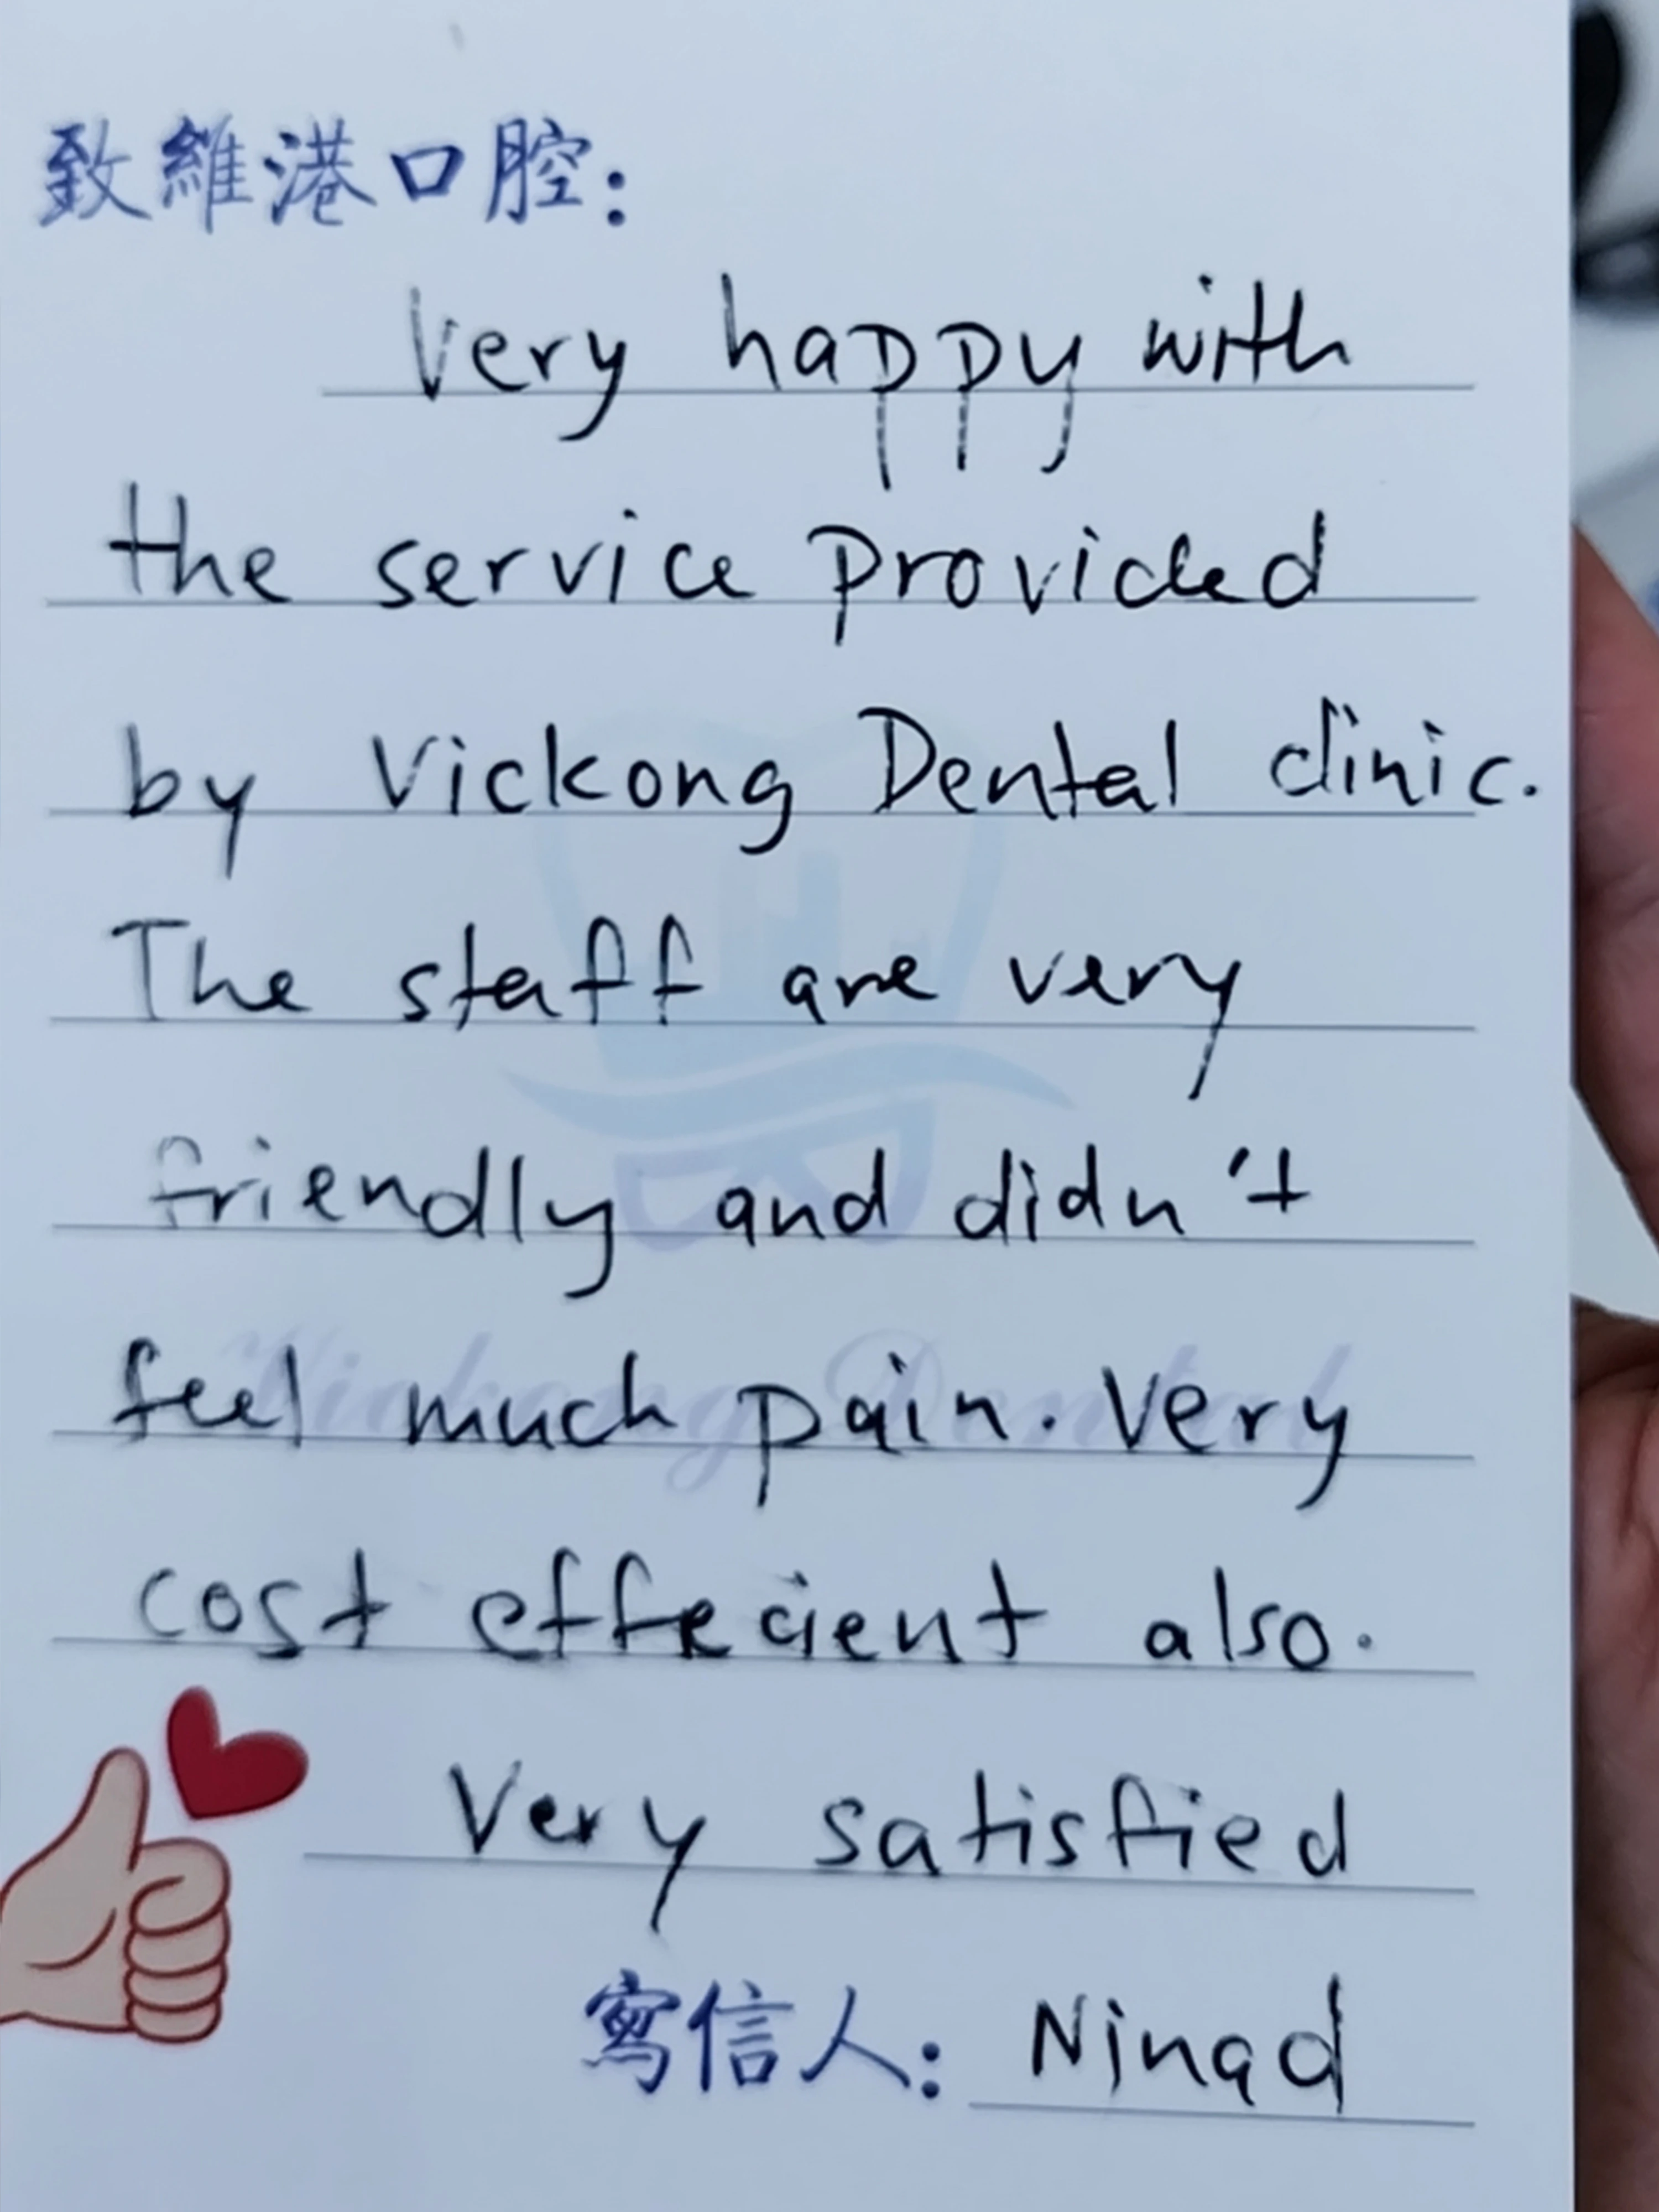 致維港口腔：
Very happy with
the service provided
by Vickong Dental clinic.
The staff are very
friendly and didn't
feel much pain. Very
Vickong Dental
cost effecient also.
Very satisfied
寫信人： Ninad